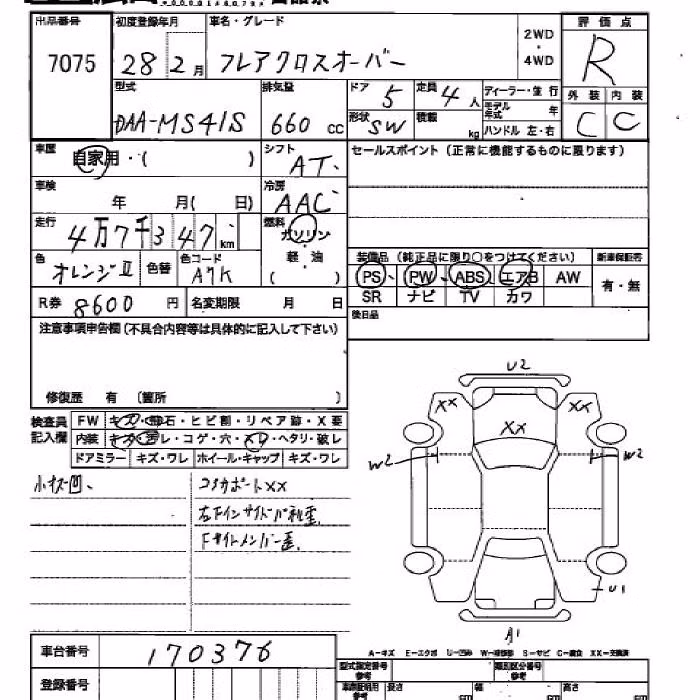 出品番号
7075
初度登録年月
28年2月
車名・グレード
フレアクロスオーバー
2WD
・
4WD
評価点
R
型式
DAA-MS41S
排気量
660 cc
ドア 5
定員 4人
ディーラー・並行
モデル年式 年
形状 SW
積載 kg
ハンドル 左・右
外装 内装
C C
車歴
自家用・( )
シフト
AT
セールスポイント（正常に機能するものに限ります）
車検
年 月( 日)
冷房
AAC
走行
4万7千347km
燃料
ガソリン・軽・油
( )
色
オレンジII
色替
色コード
A7K
装備品（純正品に限り○をつけてください）
新車保証書
PS、PW、ABS、エアB AW
SR ナビ TV カワ
有・無
R券 8600円
名変期限 月 日
後日品
注意事項申告欄（不具合内容等は具体的に記入して下さい）
修復歴 有 〔箇所 〕
検査員記入欄
FW キズ・飛石・ヒビ割・リペア跡・X要
内装 キズ・ヨゴレ・コゲ・穴・スレ・ヘタリ・破レ
ドアミラー キズ・ワレ ホイール・キャップ キズ・ワレ
小キズ凹、
コアサポートXX
左右インサイドパネル歪
Fサイドメンバー歪
U2
XX
XX
XX
W2
W2
U1
A1
A－キズ E－エクボ U－凹み W－補修跡 S－サビ C－腐食 XX－交換済
車台番号
170376
登録番号
型式指定番号
参考
類別区分番号
参考
車庫証明用
参考
長さ cm
幅 cm
高さ cm